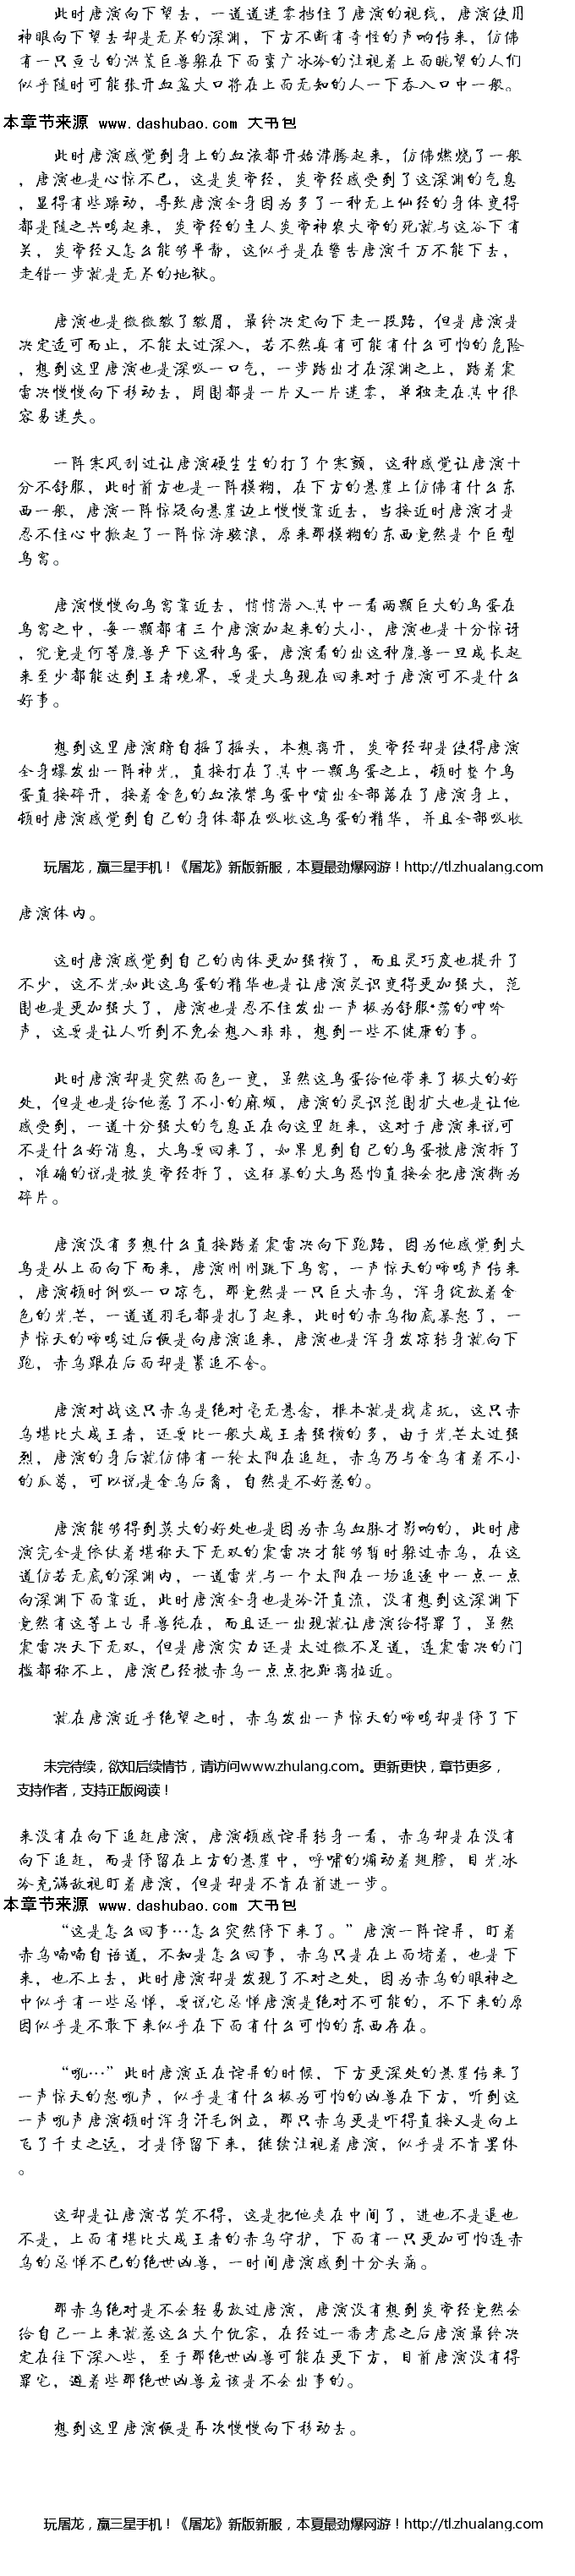 此时唐演向下望去，一道道迷雾挡住了唐演的视线，唐演使用
神眼向下望去却是无尽的深渊，下方不断有奇怪的声响传来，仿佛
有一只亘古的洪荒巨兽躲在下面蛮广冰冷的注视着上面眺望的人们
似乎随时可能张开血盆大口将在上面无知的人一下吞入口中一般。
本章节来源 www.dashubao.com 大书包
此时唐演感觉到身上的血液都开始沸腾起来，仿佛燃烧了一般
，唐演也是心惊不已，这是炎帝经，炎帝经感受到了这深渊的气息
，显得有些躁动，导致唐演全身因为多了一种无上仙经的身体变得
都是随之共鸣起来，炎帝经的主人炎帝神农大帝的死就与这谷下有
关，炎帝经又怎么能够平静，这似乎是在警告唐演千万不能下去，
走错一步就是无尽的地狱。
唐演也是微微皱了皱眉，最终决定向下走一段路，但是唐演是
决定适可而止，不能太过深入，若不然真有可能有什么可怕的危险
，想到这里唐演也是深吸一口气，一步踏出才在深渊之上，踏着震
雷决慢慢向下移动去，周围都是一片又一片迷雾，单独走在其中很
容易迷失。
一阵寒风刮过让唐演硬生生的打了个寒颤，这种感觉让唐演十
分不舒服，此时前方也是一阵模糊，在下方的悬崖上仿佛有什么东
西一般，唐演一阵惊疑向悬崖边上慢慢靠近去，当接近时唐演才是
忍不住心中掀起了一阵惊涛骇浪，原来那模糊的东西竟然是个巨型
鸟窝。
唐演慢慢向鸟窝靠近去，悄悄潜入其中一看两颗巨大的鸟蛋在
鸟窝之中，每一颗都有三个唐演加起来的大小，唐演也是十分惊讶
，究竟是何等魔兽产下这种鸟蛋，唐演看的出这种魔兽一旦成长起
来至少都能达到王者境界，要是大鸟现在回来对于唐演可不是什么
好事。
想到这里唐演暗自摇了摇头，本想离开，炎帝经却是使得唐演
全身爆发出一阵神光，直接打在了其中一颗鸟蛋之上，顿时整个鸟
蛋直接碎开，接着金色的血液紫鸟蛋中喷出全部落在了唐演身上，
顿时唐演感觉到自己的身体都在吸收这鸟蛋的精华，并且全部吸收
玩屠龙，赢三星手机！《屠龙》新版新服，本夏最劲爆网游！http://tl.zhualang.com
唐演体内。
这时唐演感觉到自己的肉体更加强横了，而且灵巧度也提升了
不少，这不光如此这鸟蛋的精华也是让唐演灵识变得更加强大，范
围也是更加强大了，唐演也是忍不住发出一声极为舒服·荡的呻吟
声，这要是让人听到不免会想入非非，想到一些不健康的事。
此时唐演却是突然面色一变，虽然这鸟蛋给他带来了极大的好
处，但是也是给他惹了不小的麻烦，唐演的灵识范围扩大也是让他
感受到，一道十分强大的气息正在向这里赶来，这对于唐演来说可
不是什么好消息，大鸟要回来了，如果见到自己的鸟蛋被唐演拆了
，准确的说是被炎帝经拆了，这狂暴的大鸟恐怕直接会把唐演撕为
碎片。
唐演没有多想什么直接踏着震雷决向下跑路，因为他感觉到大
鸟是从上面向下而来，唐演刚刚跳下鸟窝，一声惊天的啼鸣声传来
，唐演顿时倒吸一口凉气，那竟然是一只巨大赤鸟，浑身绽放着金
色的光芒，一道道羽毛都是扎了起来，此时的赤鸟彻底暴怒了，一
声惊天的啼鸣过后便是向唐演追来，唐演也是浑身发凉转身就向下
跑，赤鸟跟在后面却是紧追不舍。
唐演对战这只赤鸟是绝对毫无悬念，根本就是找虐玩，这只赤
鸟堪比大成王者，还要比一般大成王者强横的多，由于光芒太过强
烈，唐演的身后就仿佛有一轮太阳在追赶，赤鸟乃与金乌有着不小
的瓜葛，可以说是金乌后裔，自然是不好惹的。
唐演能够得到莫大的好处也是因为赤鸟血脉才影响的，此时唐
演完全是依仗着堪称天下无双的震雷决才能够暂时躲过赤鸟，在这
道仿若无底的深渊内，一道雷光与一个太阳在一场追逐中一点一点
向深渊下面靠近，此时唐演全身也是冷汗直流，没有想到这深渊下
竟然有这等上古异兽纯在，而且还一出现就让唐演给得罪了，虽然
震雷决天下无双，但是唐演实力还是太过微不足道，连震雷决的门
槛都称不上，唐演已经被赤鸟一点点把距离拉近。
就在唐演近乎绝望之时，赤鸟发出一声惊天的啼鸣却是停了下
未完待续，欲知后续情节，请访问www.zhulang.com。更新更快，章节更多，
支持作者，支持正版阅读！
来没有在向下追赶唐演，唐演顿感诧异转身一看，赤鸟却是在没有
向下追赶，而是停留在上方的悬崖中，呼啸的煽动着翅膀，目光冰
冷充满敌视盯着唐演，但是却是不肯在前进一步。
本章节来源 www.dashubao.com 大书包
“这是怎么回事…怎么突然停下来了。”唐演一阵诧异，盯着
赤鸟喃喃自语道，不知是怎么回事，赤鸟只是在上面堵着，也是下
来，也不上去，此时唐演却是发现了不对之处，因为赤鸟的眼神之
中似乎有一些忌惮，要说它忌惮唐演是绝对不可能的，不下来的原
因似乎是不敢下来似乎在下面有什么可怕的东西存在。
“吼…”此时唐演正在诧异的时候，下方更深处的悬崖传来了
一声惊天的怒吼声，似乎是有什么极为可怕的凶兽在下方，听到这
一声吼声唐演顿时浑身汗毛倒立，那只赤鸟更是吓得直接又是向上
飞了千丈之远，才是停留下来，继续注视着唐演，似乎是不肯罢休
。
这却是让唐演苦笑不得，这是把他夹在中间了，进也不是退也
不是，上面有堪比大成王者的赤鸟守护，下面有一只更加可怕连赤
鸟的忌惮不已的绝世凶兽，一时间唐演感到十分头痛。
那赤鸟绝对是不会轻易放过唐演，唐演没有想到炎帝经竟然会
给自己一上来就惹这么大个仇家，在经过一番考虑之后唐演最终决
定在往下深入些，至于那绝世凶兽可能在更下方，目前唐演没有得
罪它，避着些那绝世凶兽应该是不会出事的。
想到这里唐演便是再次慢慢向下移动去。
玩屠龙，赢三星手机！《屠龙》新版新服，本夏最劲爆网游！http://tl.zhualang.com